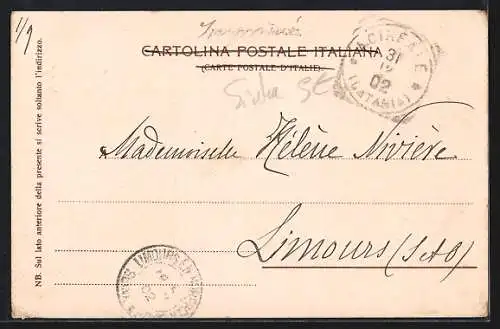 1/9
Imprimés
CARTOLINA POSTALE ITALIANA
(CARTE POSTALE D'ITALIE)
ACIREALE
31
12
02
(CATANIA)
Mademoiselle Hélène Nivière
Limours (S&O)
LIMOURS-EN-HUREPOIX
02
NB. Sul lato anteriore della presente si scrive soltanto l'indirizzo.